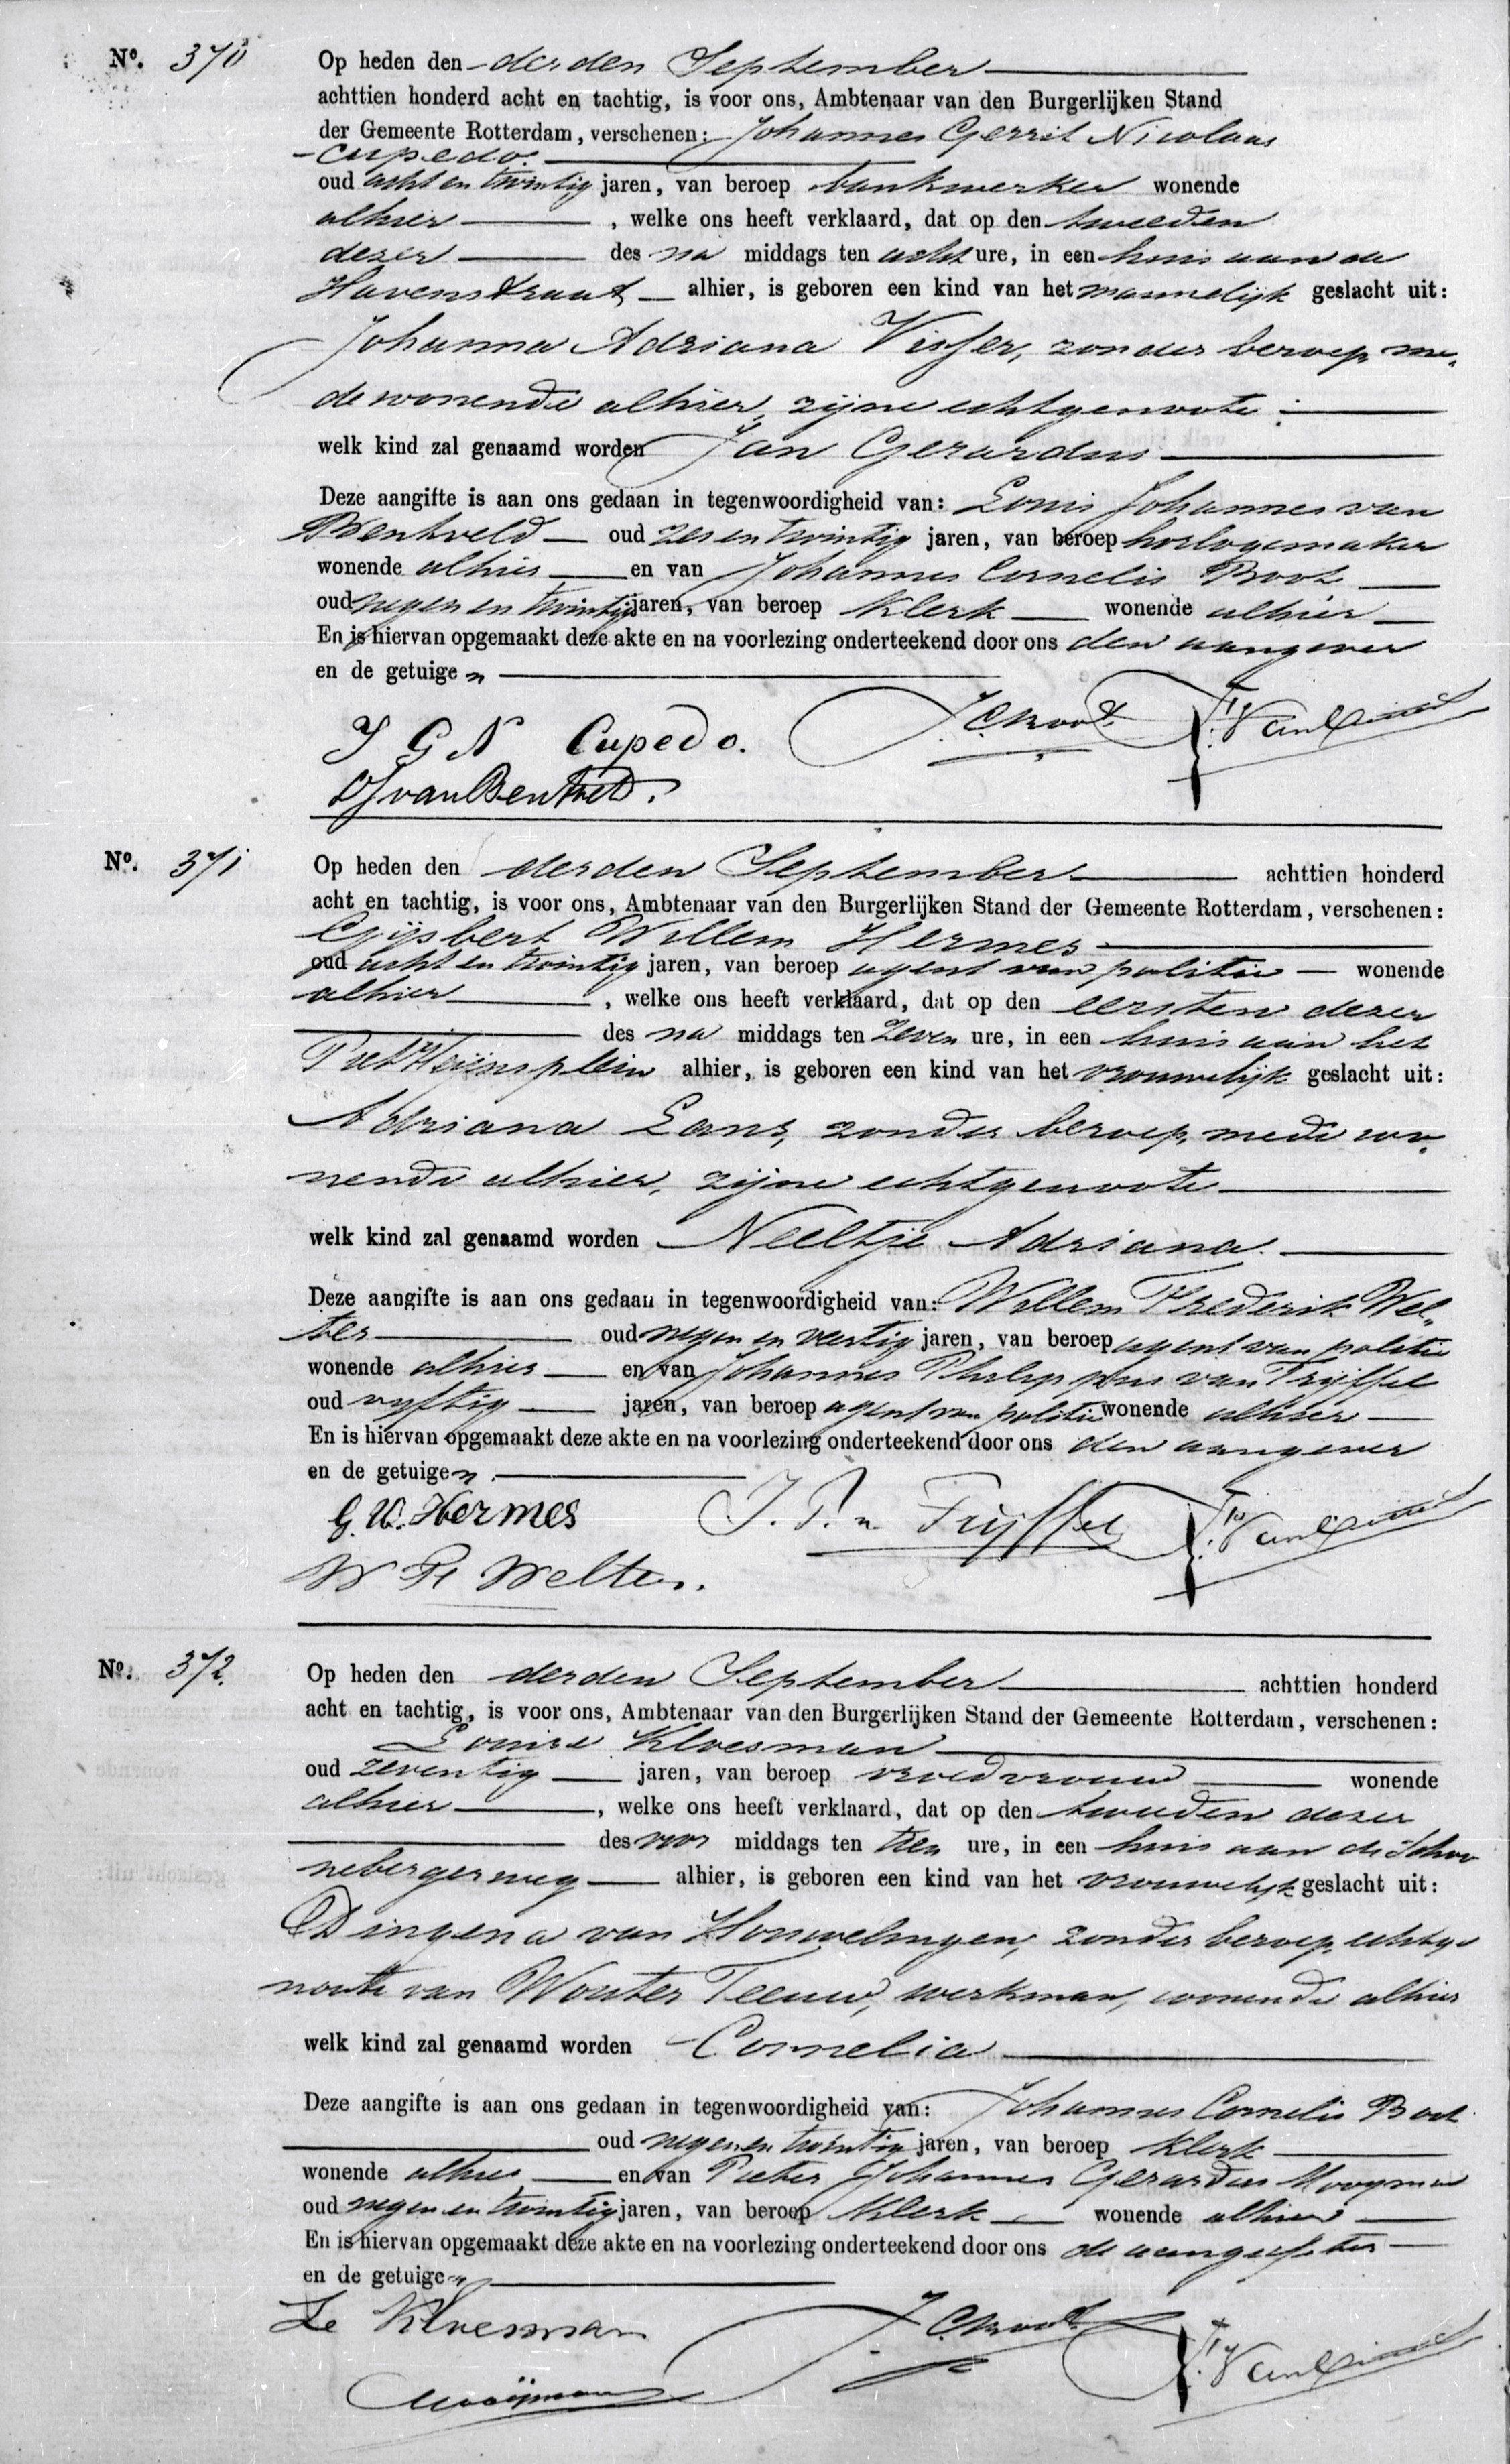 No. 370
Op heden den derden September
achttien honderd acht en tachtig, is voor ons, Ambtenaar van den Burgerlijken Stand
der Gemeente Rotterdam, verschenen: Johannes Gerrit Nicolaas
Cupedo.
oud acht en twintig jaren, van beroep bankwerker wonende
alhier, welke ons heeft verklaard, dat op den tweeden
dezer des na middags ten acht ure, in een huis aan de
Havenstraat alhier, is geboren een kind van het mannelijk geslacht uit:
Johanna Adriana Visser, zonder beroep me„
dewonende alhier, zijne echtgenoote.
welk kind zal genaamd worden Jan Gerardus
Deze aangifte is aan ons gedaan in tegenwoordigheid van: Louis Johannes van
Bentveld oud zes en twintig jaren, van beroep horlogemaker
wonende alhier en van Johannes Cornelis Boot
oud negen en twintig jaren, van beroep klerk wonende alhier
En is hiervan opgemaakt deze akte en na voorlezing onderteekend door ons den aangever
en de getuigen
J G N Cupedo. J. C. Boot.
LJ van Bentveld.
No. 371
Op heden den derden September achttien honderd
acht en tachtig, is voor ons, Ambtenaar van den Burgerlijken Stand der Gemeente Rotterdam, verschenen:
Gijsbert Willem Hermes
oud acht en twintig jaren, van beroep agent van politie wonende
alhier, welke ons heeft verklaard, dat op den eersten dezer
des na middags ten zeven ure, in een huis aan het
Piet Heijnsplein alhier, is geboren een kind van het vrouwelijk geslacht uit:
Adriana Lans, zonder beroep, mede wo„
nende alhier, zijne echtgenoote
welk kind zal genaamd worden Neeltje Adriana.
Deze aangifte is aan ons gedaan in tegenwoordigheid van: Willem Frederik Wel„
ter oud negen en veertig jaren, van beroep agent van politie
wonende alhier en van Johannes Philippus van Trijffel
oud vyftig jaren, van beroep agent van politie wonende alhier
En is hiervan opgemaakt deze akte en na voorlezing onderteekend door ons den aangever
en de getuigen.
G. W. Hermes J. P. v. Trijffel
W Fr Welter.
No. 372.
Op heden den derden September achttien honderd
acht en tachtig, is voor ons, Ambtenaar van den Burgerlijken Stand der Gemeente Rotterdam, verschenen:
Louise Kloesman
oud zeventig jaren, van beroep vroedvrouw wonende
alhier, welke ons heeft verklaard, dat op den tweeden dezer
des voor middags ten tien ure, in een huis aan de Schoo
nebergerweg alhier, is geboren een kind van het vrouwelijk geslacht uit:
Dingena van Houwelingen, zonder beroep, echtge
noote van Wouter Teeuw, werkman, wonende alhier
welk kind zal genaamd worden Cornelia
Deze aangifte is aan ons gedaan in tegenwoordigheid van: Johannes Cornelis Boot
oud negen en twintig jaren, van beroep klerk
wonende alhier en van Pieter Johannes Gerardus Mooyman
oud negen en twintig jaren, van beroep klerk wonende alhier
En is hiervan opgemaakt deze akte en na voorlezing onderteekend door ons de aangeefster
en de getuigen
Le Kloesman J. C. Boot.
Mooijman